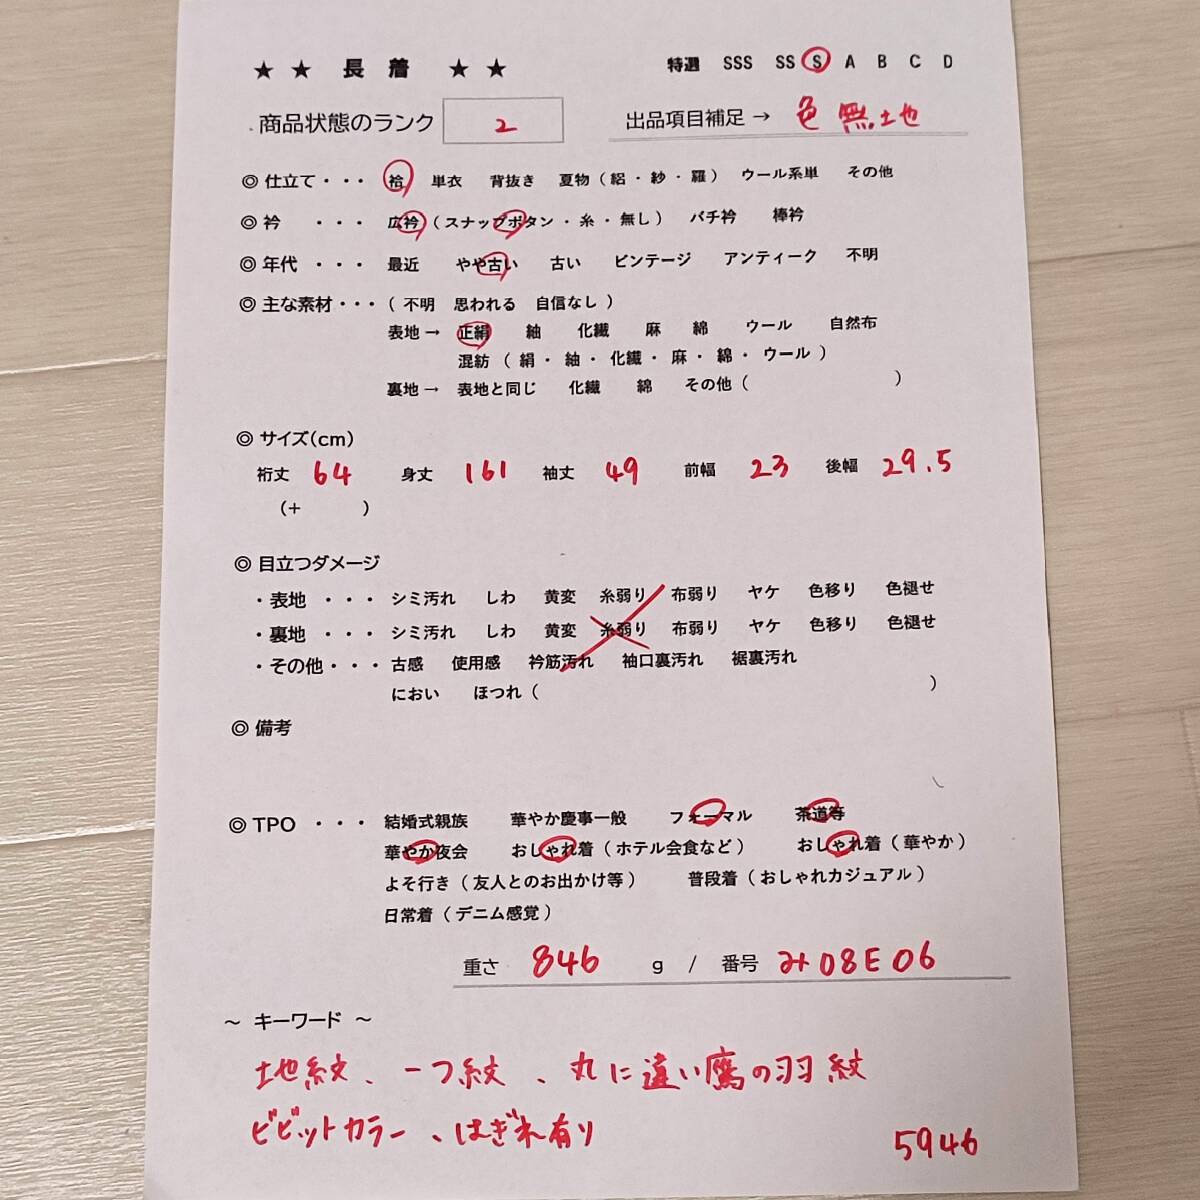 ★ ★ 長 着 ★ ★ 特選 SSS SS S A B C D
商品状態のランク 2 出品項目補足 → 色無土地
◎ 仕立て・・・ 袷 単衣 背抜き 夏物(絽・紗・羅) ウール系単 その他
◎ 衿 ・・・ 広衿(スナップボタン・糸・無し) バチ衿 棒衿
◎ 年代 ・・・ 最近 やや古い 古い ビンテージ アンティーク 不明
◎ 主な素材・・・(不明 思われる 自信なし)
表地→ 正絹 紬 化繊 麻 綿 ウール 自然布
混紡(絹・紬・化繊・麻・綿・ウール)
裏地→ 表地と同じ 化繊 綿 その他( )
◎ サイズ(cm)
裄丈 64 身丈 161 袖丈 49 前幅 23 後幅 29.5
(+ )
◎ 目立つダメージ
・表地 ・・・ シミ汚れ しわ 黄変 糸弱り 布弱り ヤケ 色移り 色褪せ
・裏地 ・・・ シミ汚れ しわ 黄変 糸弱り 布弱り ヤケ 色移り 色褪せ
・その他・・・ 古感 使用感 衿筋汚れ 袖口裏汚れ 裾裏汚れ
におい ほつれ( )
◎ 備考
◎ TPO ・・・ 結婚式親族 華やか慶事一般 フォーマル 茶道等
華やか夜会 おしゃれ着(ホテル会食など) おしゃれ着(華やか)
よそ行き(友人とのお出かけ等) 普段着(おしゃれカジュアル)
日常着(デニム感覚)
重さ 846 g / 番号 み08E06
～ キーワード ～
地紋、一つ紋、丸に違い鷹の羽紋
ビビットカラー、はぎれ有り
5946